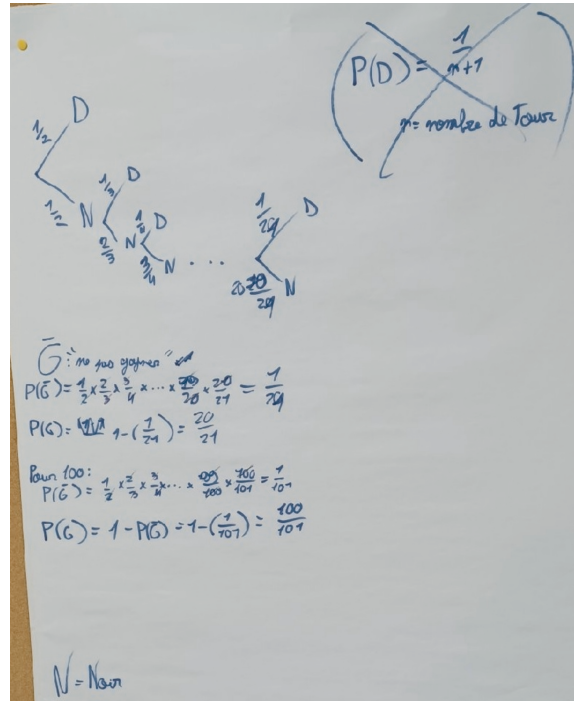 P(D) = 1/n+1
n = nombre de Tour
1/2 D
1/2 N
1/3 D
2/3 N
1/4 D
3/4 N
...
1/21 D
20/21 N
G̅ : "ne pas gagner"
P(G̅) = 1/2 × 2/3 × 3/4 × ... × 19/20 × 20/21 = 1/21
P(G) = 1 - (1/21) = 20/21
Pour 100 :
P(G̅) = 1/2 × 2/3 × 3/4 × ... × 99/100 × 100/101 = 1/101
P(G) = 1 - P(G̅) = 1 - (1/101) = 100/101
N = Noir